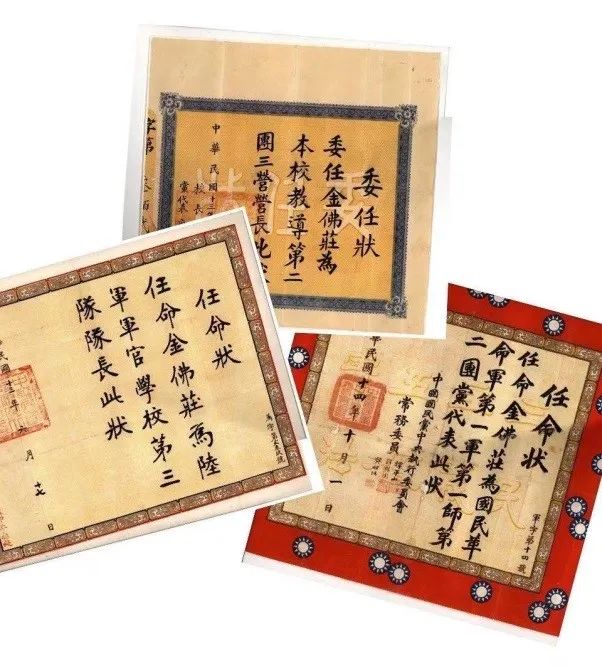 委任狀
委任金佛莊為
本校教導第二
團三營營長此
中華民國十三
校長
黨代表
任命狀
任命金佛莊爲陸
軍軍官學校第三
隊隊長此狀
民國十三年
月十七日
任命狀
任命金佛莊為國民革
命軍第一軍第一師第
二團黨代表此狀
中國國民黨中央執行委員會
常務委員
華民國十四年十月一日
軍字第十四號